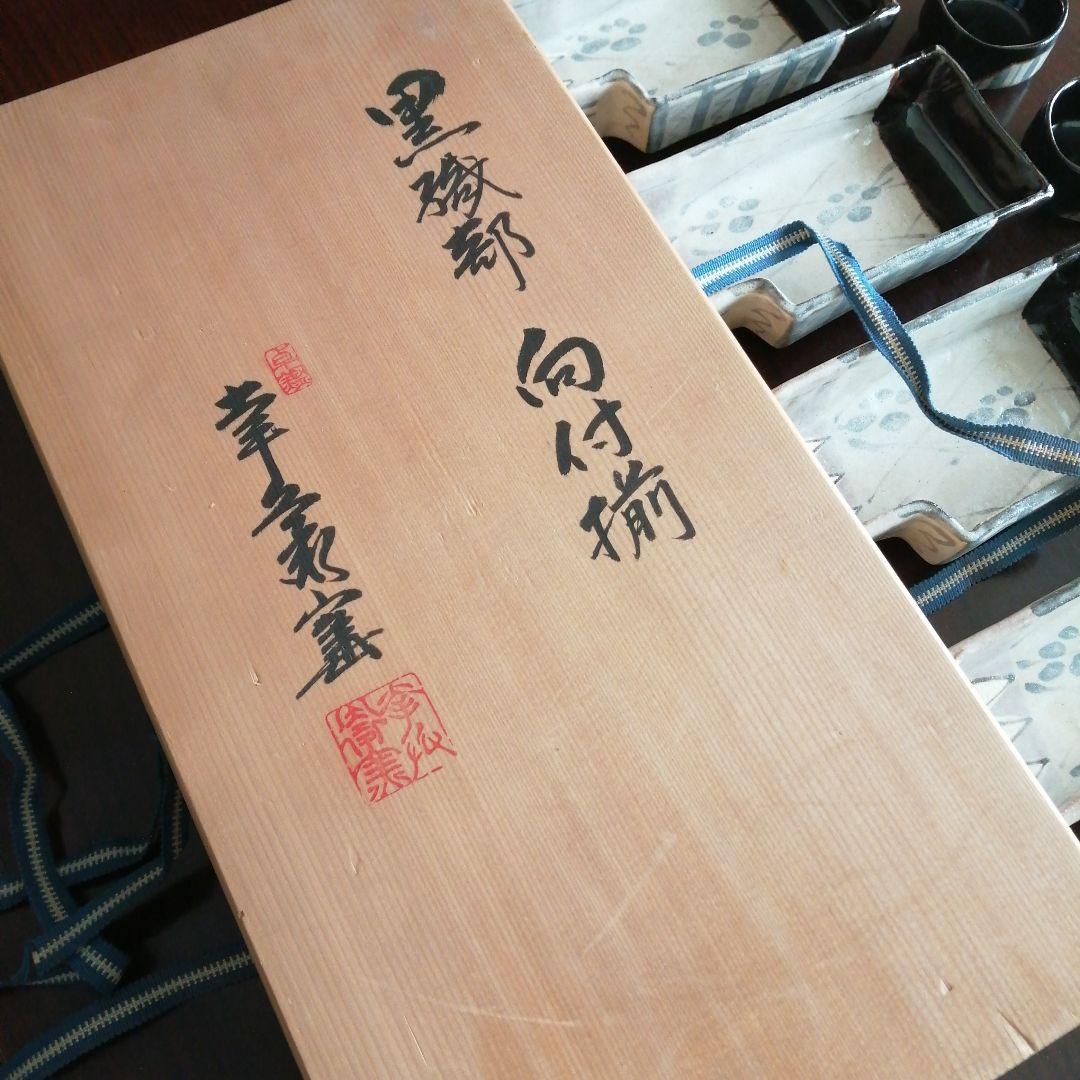 黒織部
向付揃
幸兵衛窯